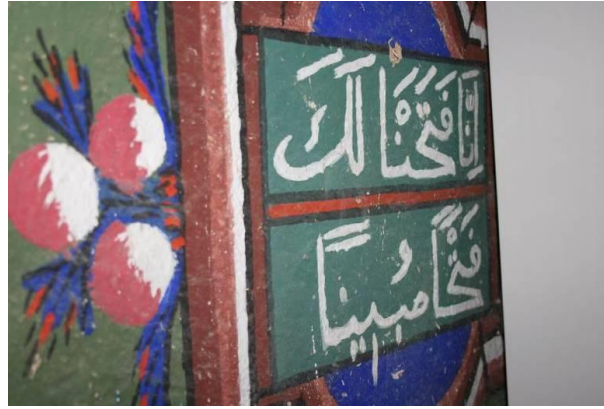 اِنَّا فَتَحْنَا لَكَ
فَتْحًا مُبينًا